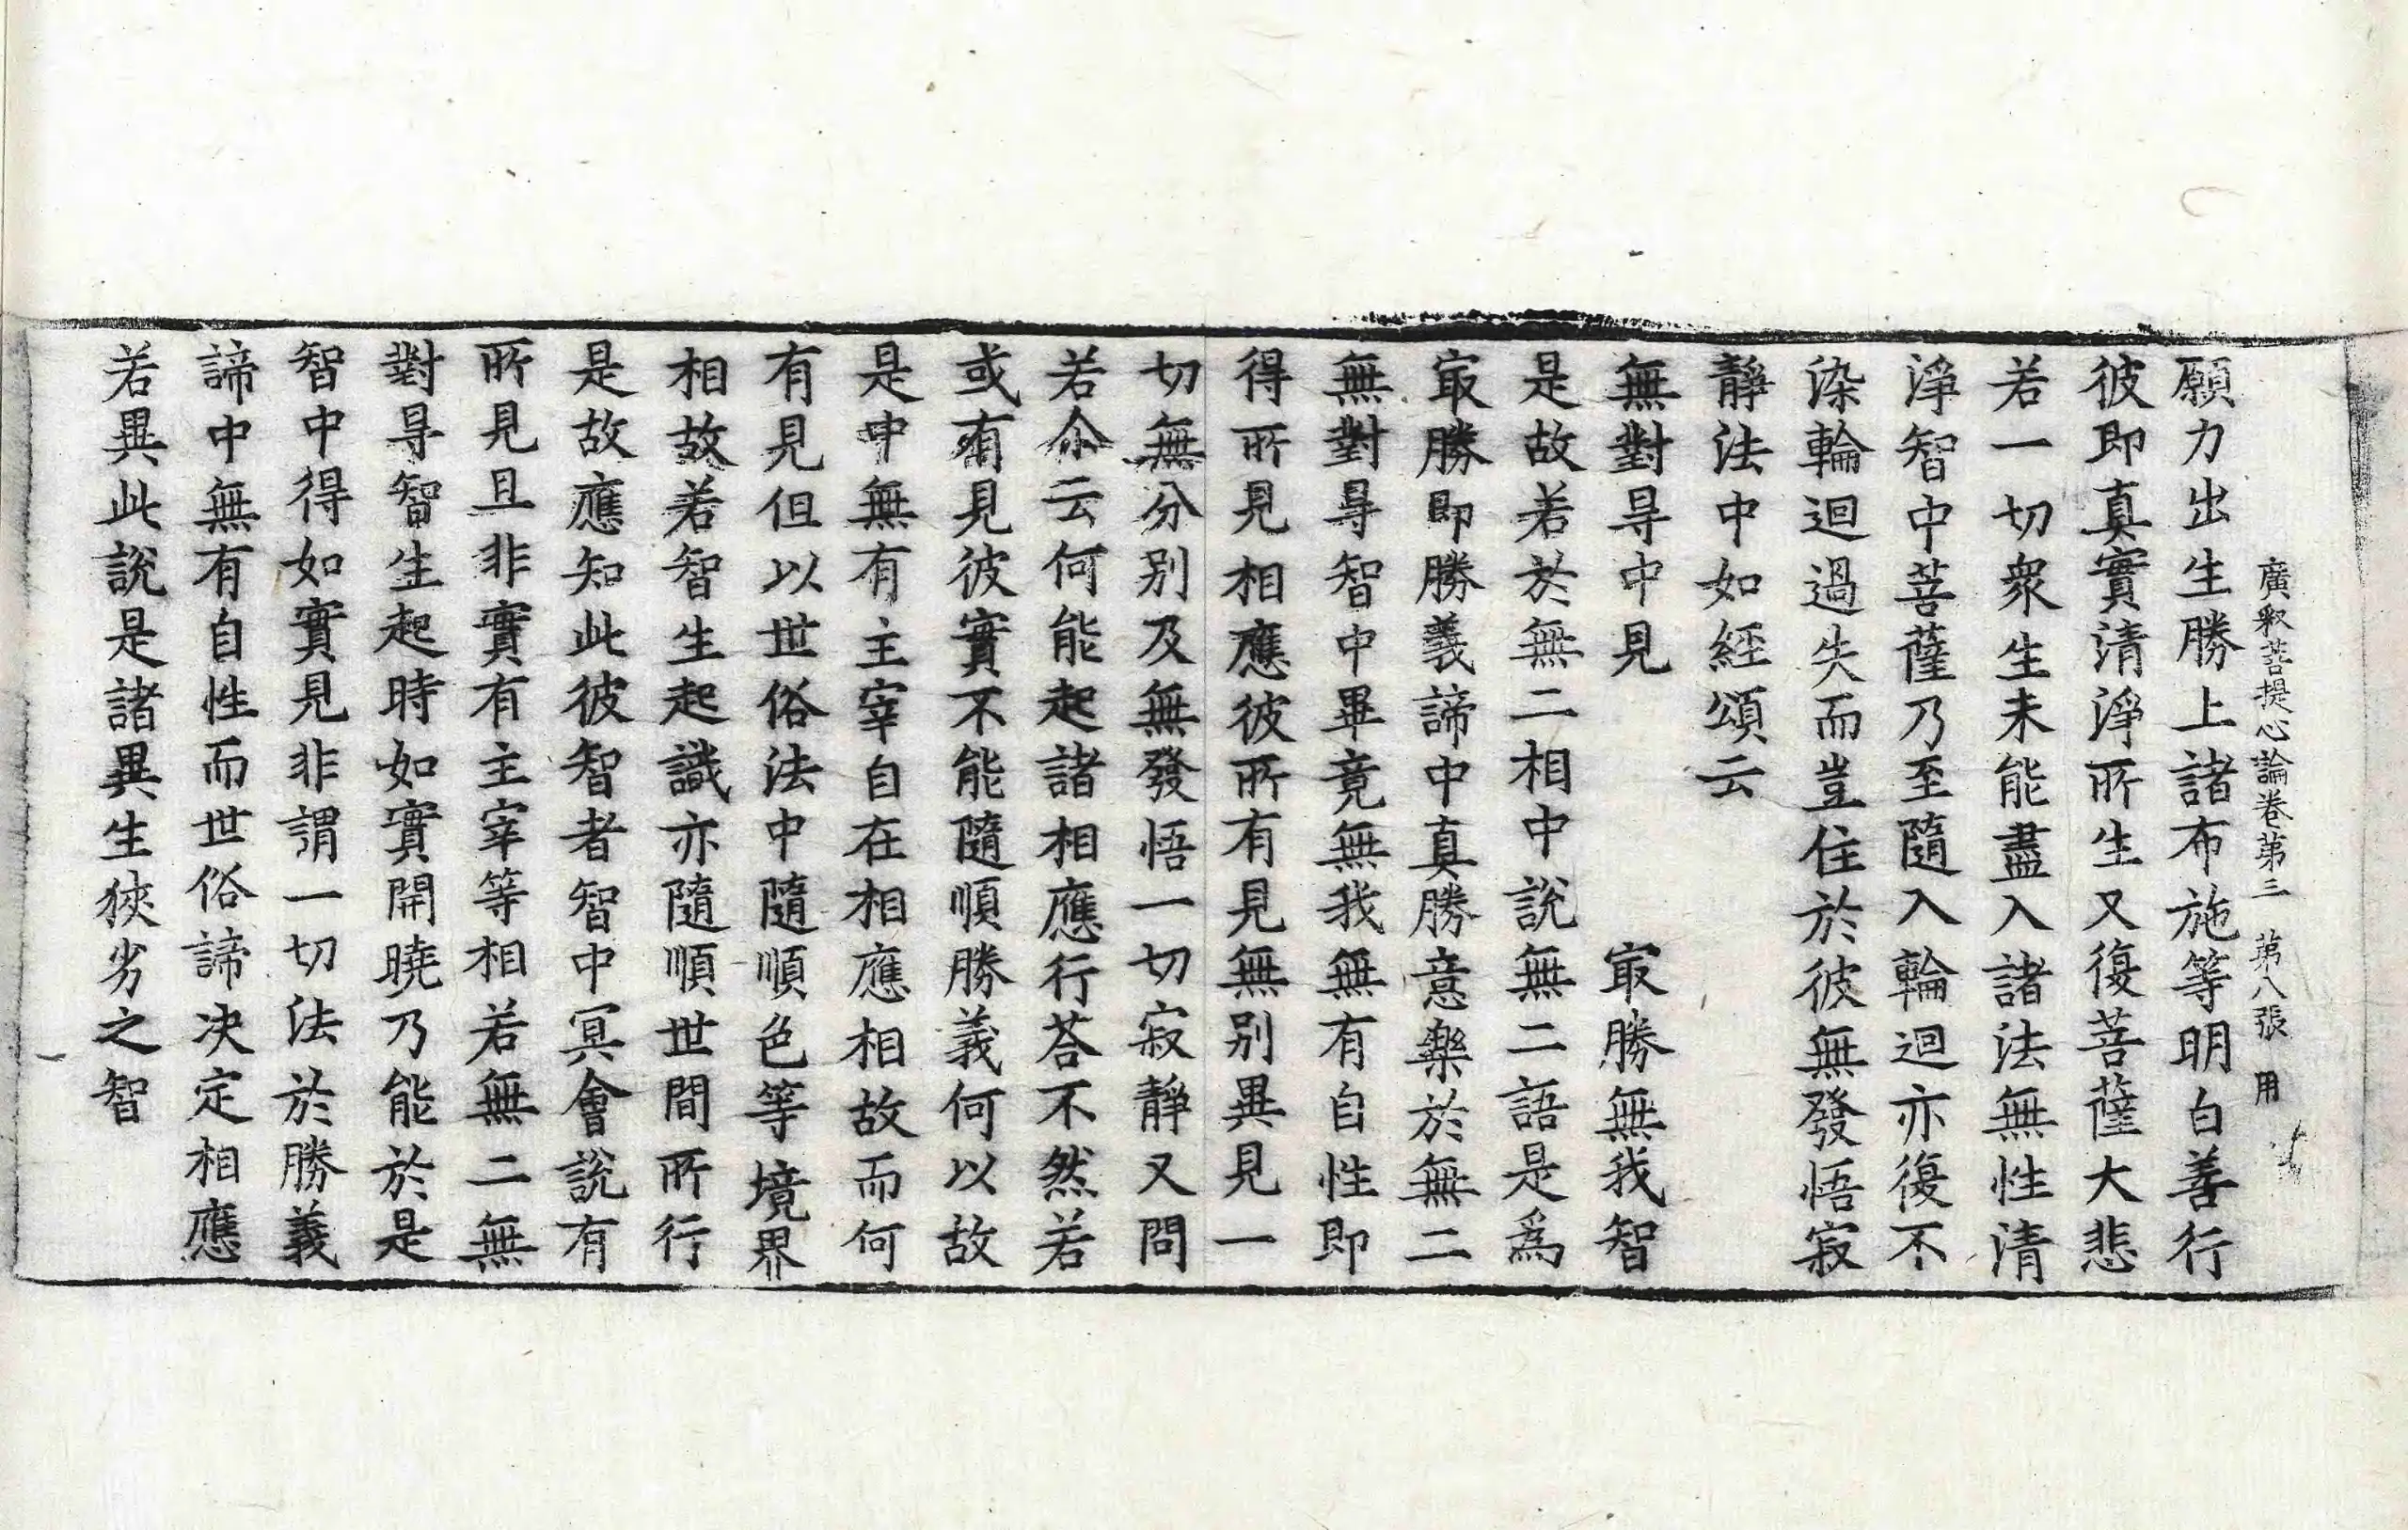 廣釈菩提心論卷第三　第八張　用
願力出生勝上諸布施等明白善行
彼即真實清淨所生又復菩薩大悲
若一切衆生未能盡入諸法無性清
淨智中菩薩乃至隨入輪迴亦復不
染輪迴過失而豈住於彼無發悟寂
靜法中如經頌云
無對㝵中見　　　㝡勝無我智
是故若於無二相中說無二語是爲
㝡勝即勝義諦中真勝意樂於無二
無對㝵智中畢竟無我無有自性即
得所見相應彼所有見無別異見一
切無分別及無發悟一切寂靜又問
若尒云何能起諸相應行荅不然若
或有見彼實不能隨順勝義何以故
是中無有主宰自在相應相故而何
有見但以世俗法中隨順色等境界
相故若智生起識亦隨順世間所行
是故應知此彼智者智中冥會說有
所見且非實有主宰等相若無二無
對㝵智生起時如實開曉乃能於是
智中得如實見非謂一切法於勝義
諦中無有自性而世俗諦决定相應
若異此說是諸異生狹劣之智